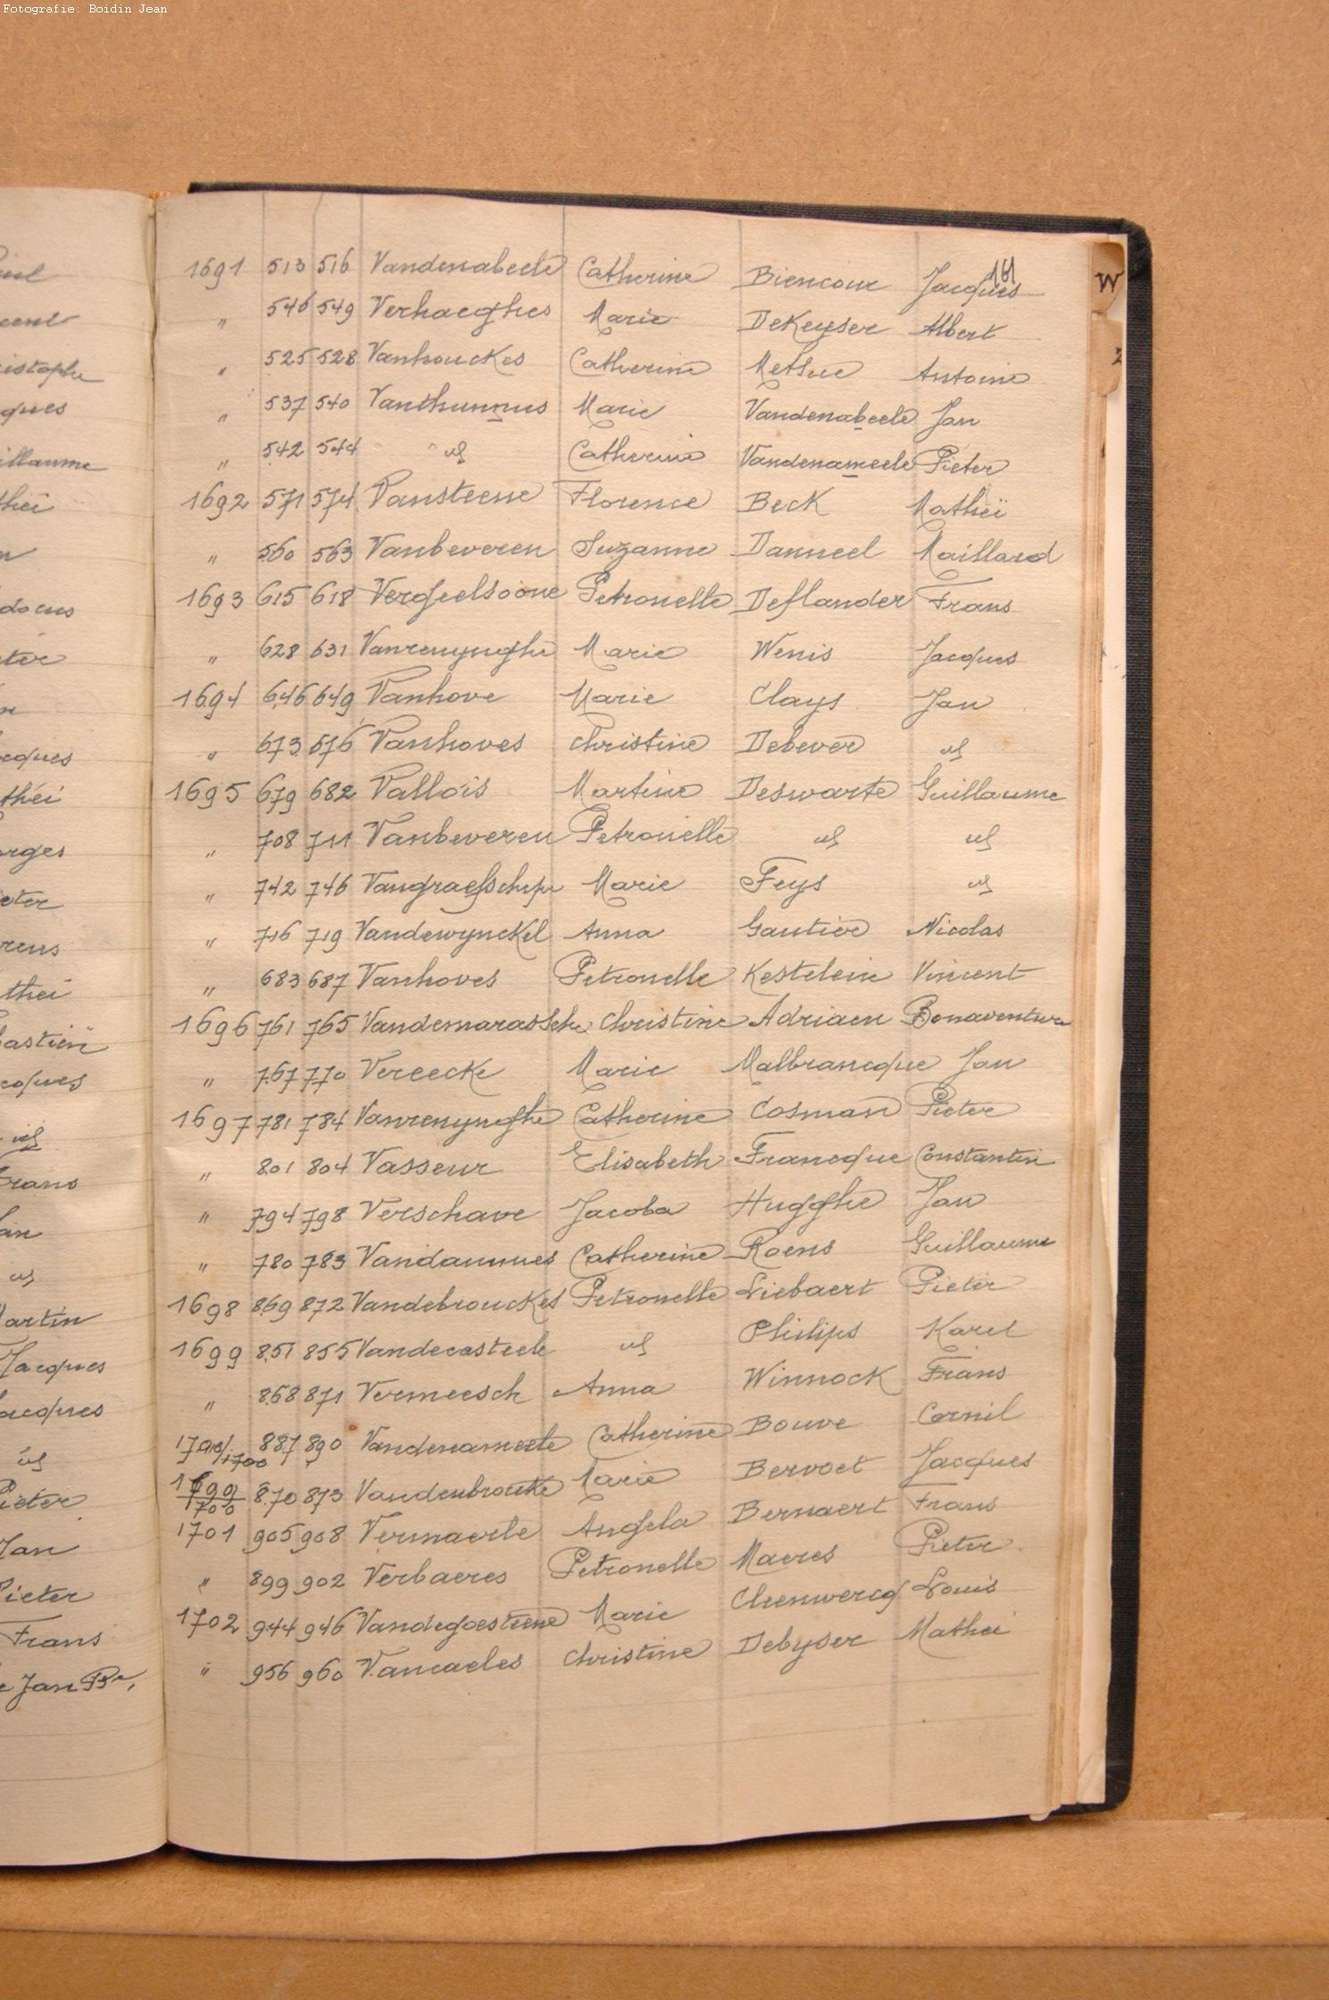 Fotografie: Boidin Jean
161
W
1691 513 516 Vandenabeele Catherine Biencour Jacques
" 546 549 Verhaeghes Marie DeKeyser Albert
" 525 528 Vanhouckes Catherine Methue Antoine
" 537 540 Vanthunnus Marie Vandenabeele Jan
" 542 544 " id Catherine Vandenameele Pieter
1692 571 574 Vansteene Florence Beck Matheï
" 560 563 Vanbeveren Suzanne Danneel Maillard
1693 615 618 Vergeelsoone Petronelle Deflander Frans
" 628 631 Vanrenynghe Marie Wenis Jacques
1694 646 649 Vanhove Marie Clays Jan
" 673 676 Vanhoves Christine Debever id
1695 679 682 Vallois Martine Deswarte Guillaume
" 708 711 Vanbeveren Petronelle id id
" 742 746 Vangraefschepe Marie Feys id
" 716 719 Vandewynckel Anna Gautier Nicolas
" 683 687 Vanhoves Petronelle Kestelein Vincent
1696 761 765 Vandemarassche Christine Adriaen Bonaventure
" 767 770 Vereecke Marie Malbrancque Jan
1697 781 784 Vanrenynghe Catherine Cosman Pieter
" 801 804 Vasseur Elisabeth Francque Constantin
" 794 798 Verschave Jacoba Hugghe Jan
" 780 783 Vandammes Catherine Roens Guillaume
1698 869 872 Vandebrouckes Petronelle Liebaert Pieter
1699 851 855 Vandecasteele id Philips Karel
" 868 871 Vermeesch Anna Winnock Frans
1700 887 890 Vandenameele Catherine Bouve Cornil
1699/1700 870 873 Vandenbroucke Marie Bervoet Jacques
1701 905 908 Vermaerle Angela Bernaert Frans
" 899 902 Verbaeres Petronelle Maeres Pieter
1702 944 946 Vandegoesteene Marie Cleenwercq Louis
" 956 960 Vancaeles Christine Debyser Mathei